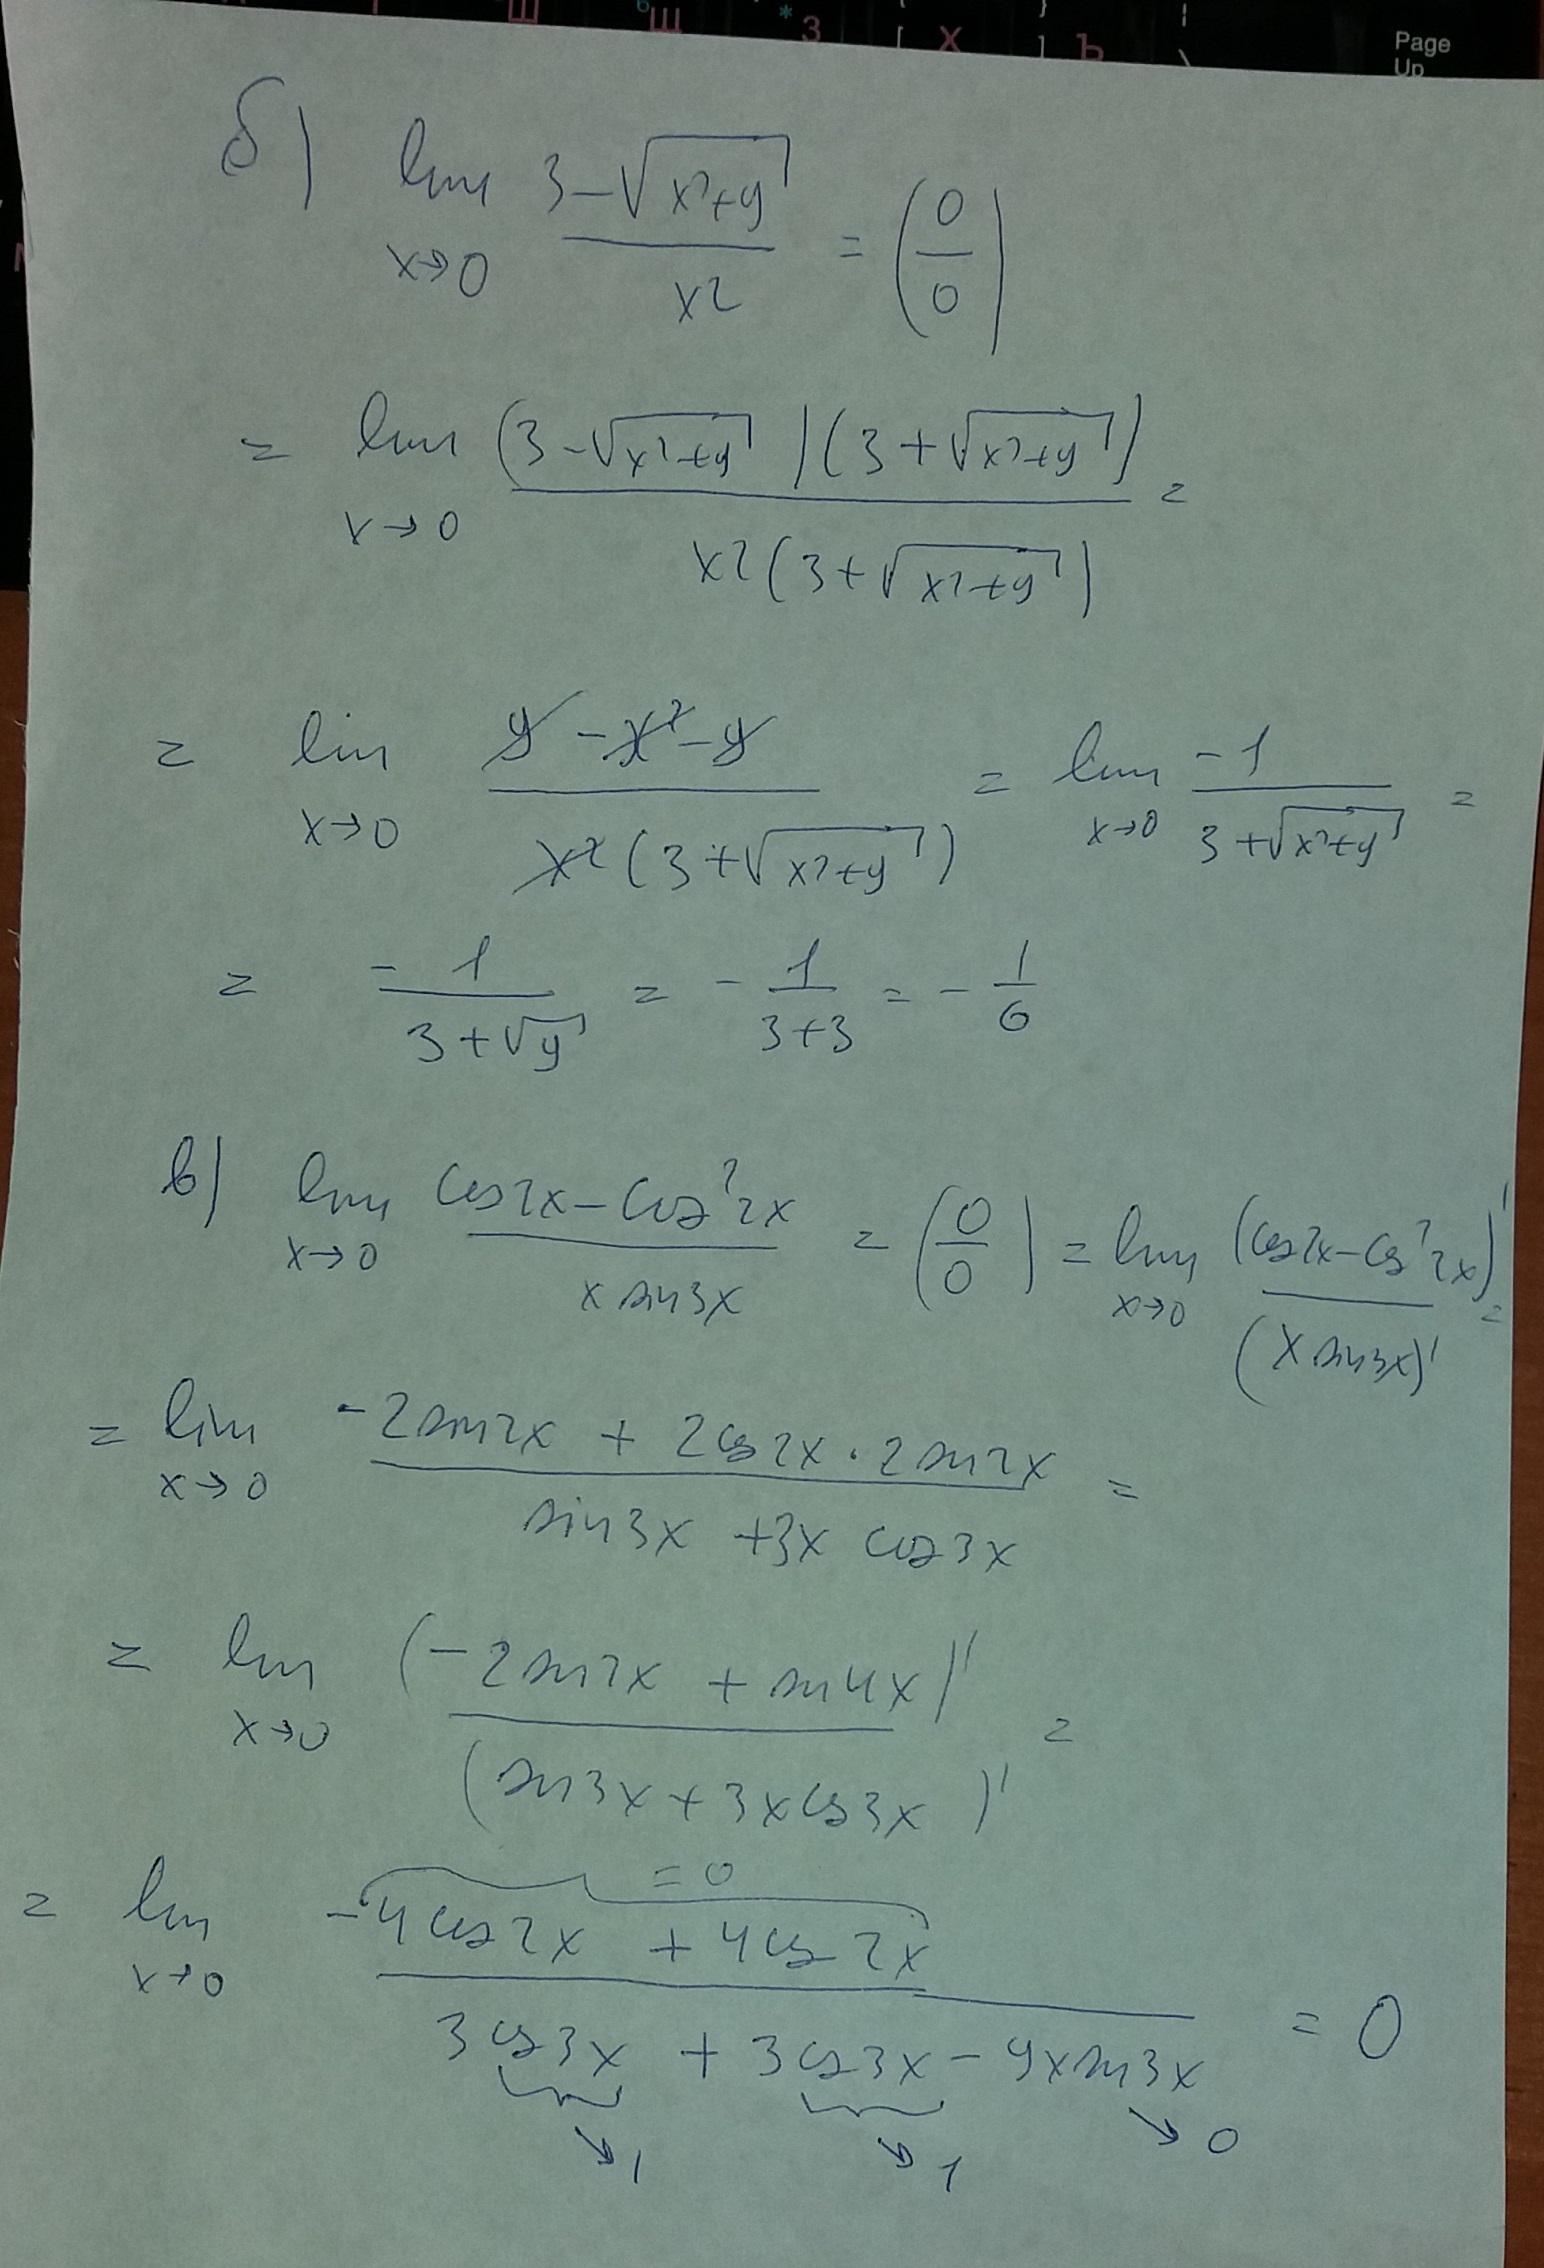 Ш Щ * З { [ Х } ] Ъ ¦ \ Page Up
б) lim_{x→0} (3-√(x²+9))/x² = (0/0)
= lim_{x→0} ((3-√(x²+9))(3+√(x²+9)))/(x²(3+√(x²+9))) =
= lim_{x→0} (9-x²-9)/(x²(3+√(x²+9))) = lim_{x→0} (-1)/(3+√(x²+9)) =
= -1/(3+√9) = -1/(3+3) = -1/6
в) lim_{x→0} (cos2x-cos²2x)/(x sin3x) = (0/0) = lim_{x→0} (cos2x-cos²2x)'/(x sin3x)' =
= lim_{x→0} (-2sin2x + 2cos2x·2sin2x)/(sin3x +3x cos3x) =
= lim_{x→0} (-2sin2x + sin4x)'/(sin3x+3xcos3x)' =
=0
= lim_{x→0} (-4cos2x + 4cos2x)/(3cos3x + 3cos3x - 9xsin3x) = 0
→1 →1 →0